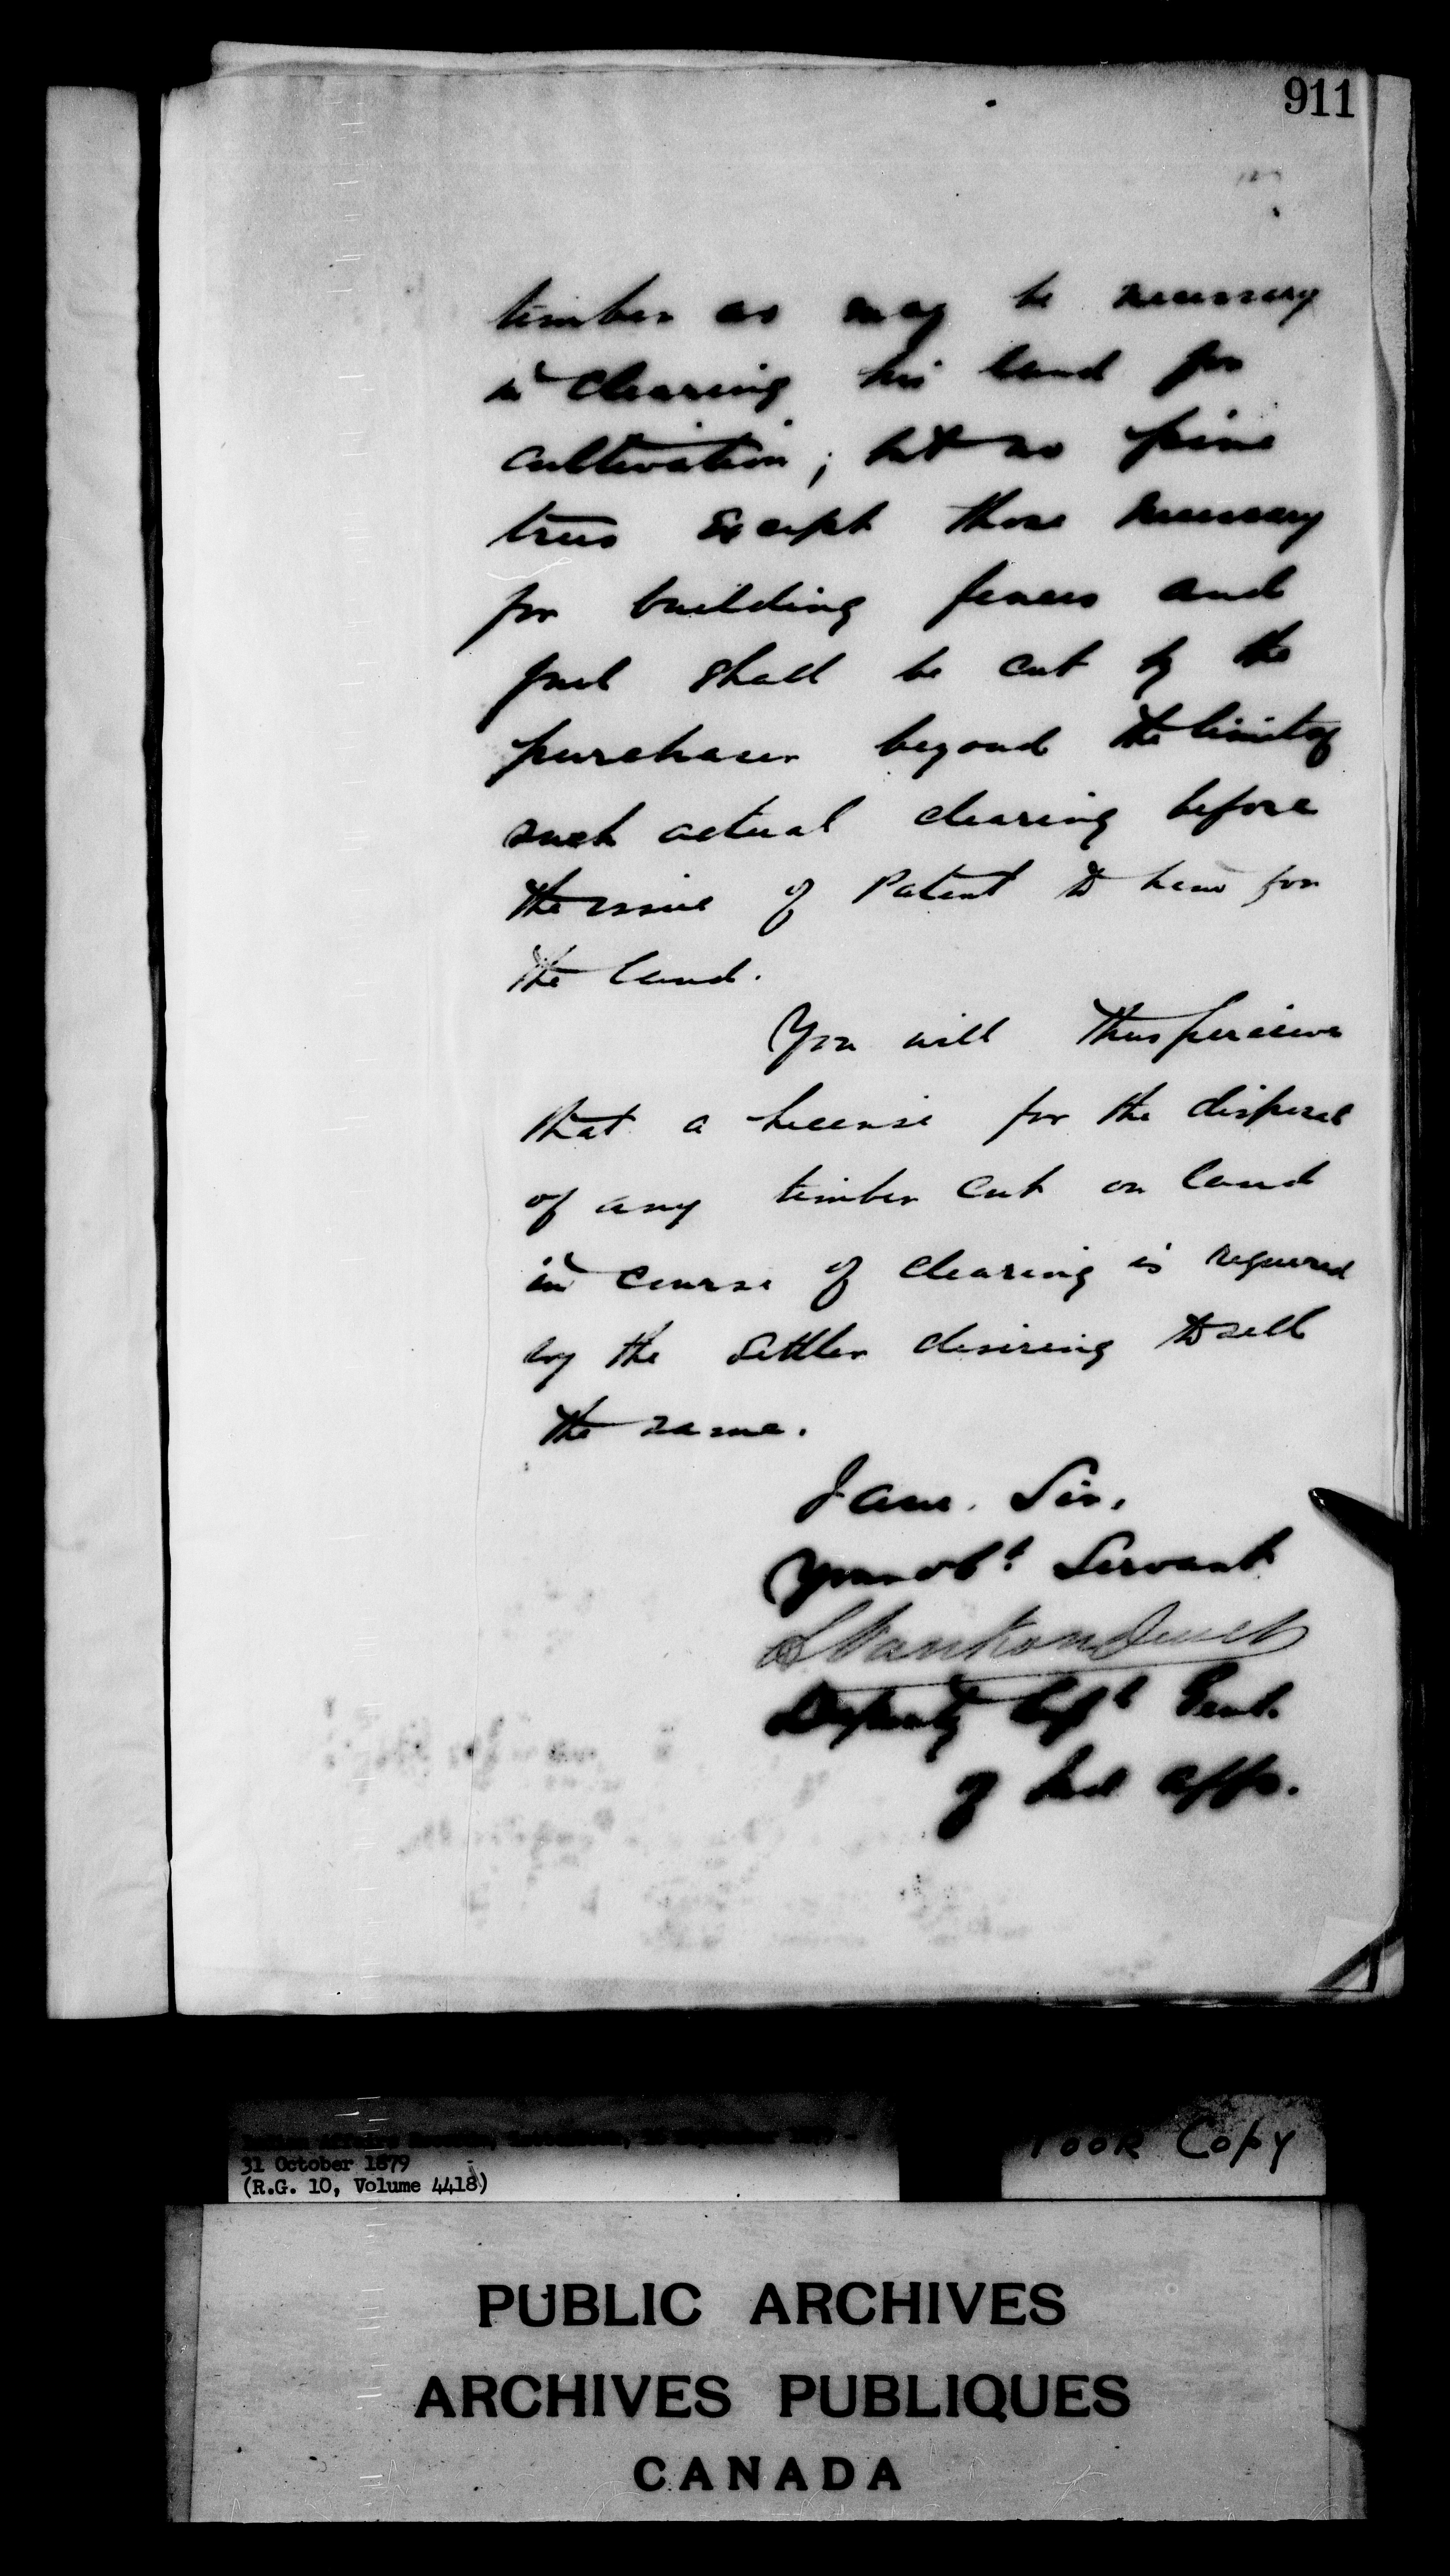 911
timber as may be necessary
in clearing his land for
cultivation; but no pine
trees Except those necessary
for building fences and
fuel shall be cut by the
purchaser beyond the limits of
such actual clearing before
the issue of Patent to him for
the land.
You will thus perceive
that a license for the disposal
of any timber cut on land
in course of clearing is required
by the Settler desiring to sell
the same.
I am, Sir,
Your obt Servant
L Vankoughnet
Deputy Supt Genl.
of Ind Affs.
31 October 1879
(R.G. 10, Volume 4418)
Poor Copy
PUBLIC ARCHIVES
ARCHIVES PUBLIQUES
CANADA